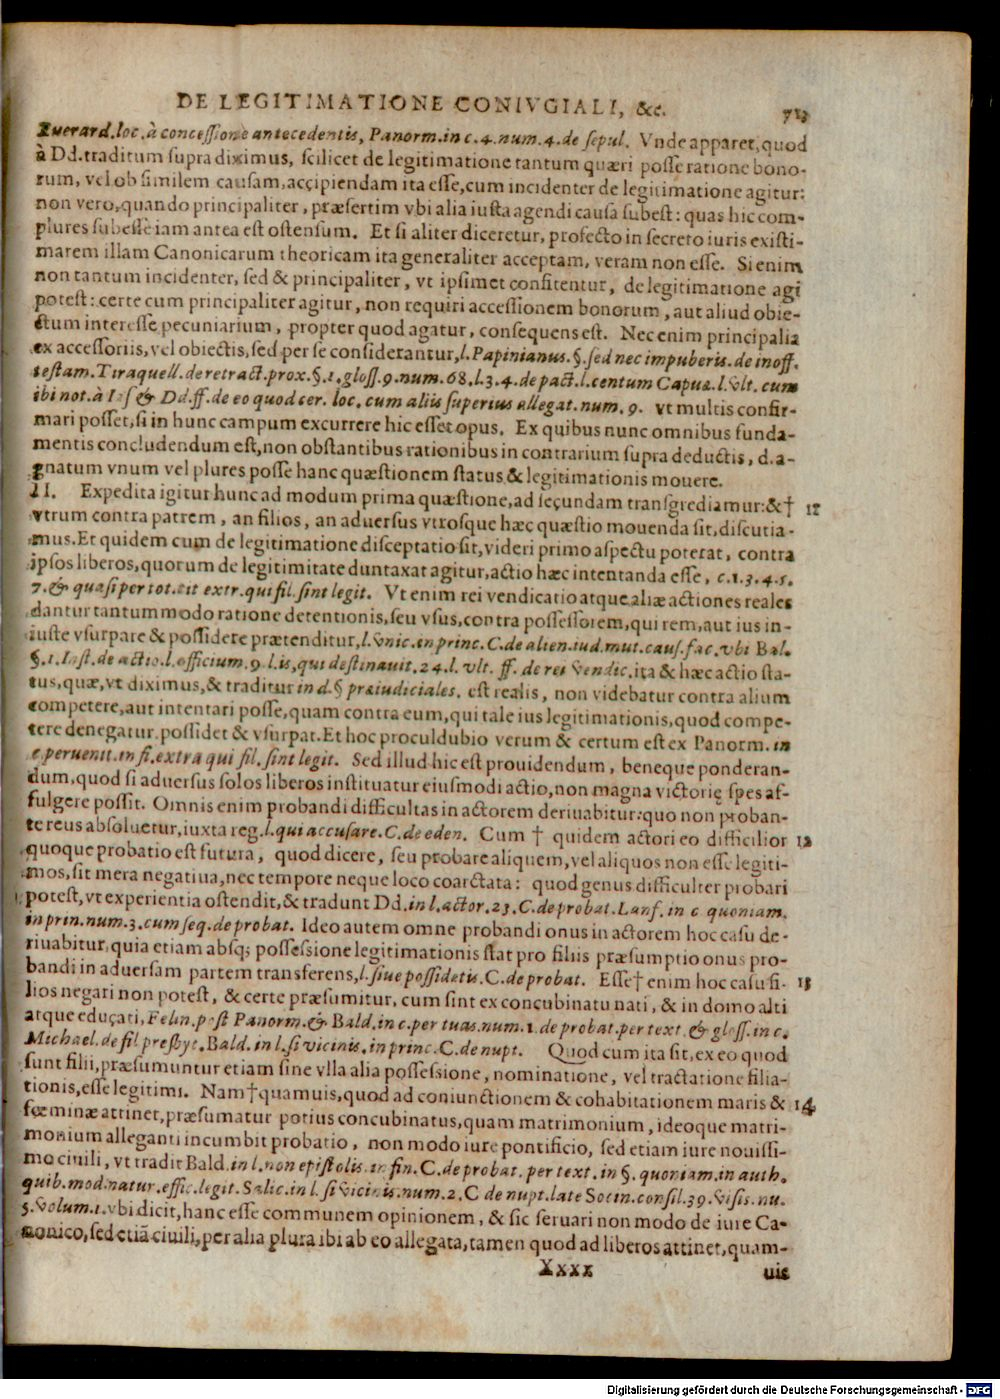 DE LEGITIMATIONE CONIVGIALI, &c. 713
Euerard. loc. à concessione antecedentis, Panorm. in c. 4. num. 4. de sepul. Vnde apparet, quod
à Dd. traditum supra diximus, scilicet de legitimatione tantum quæri posse ratione bono-
rum, vel ob similem causam, accipiendam ita esse, cum incidenter de legitimatione agitur:
non vero, quando principaliter, præsertim vbi alia iusta agendi causa subest: quas hic com-
plures subesse iam antea est ostensum. Et si aliter diceretur, profecto in secreto iuris existi-
marem illam Canonicarum theoricam ita generaliter acceptam, veram non esse. Si enim
non tantum incidenter, sed & principaliter, vt ipsimet confitentur, de legitimatione agi
potest: certe cum principaliter agitur, non requiri accessionem bonorum, aut aliud obie-
ctum interesse pecuniarium, propter quod agatur, consequens est. Nec enim principalia
ex accessoriis, vel obiectis, sed per se considerantur, l. Papinianus. §. sed nec impuberis. de inoff.
testam. Tiraquell. de retract. prox. §. 1. gloss. 9. num. 68. l. 3. 4. de pact. l. centum Capuæ. l. vlt. cum
ibi not. à Ias & Dd. ff. de eo quod cer. loc. cum aliis superius allegat. num. 9. vt multis confir-
mari posset, si in hunc campum excurrere hic esset opus. Ex quibus nunc omnibus funda-
mentis concludendum est, non obstantibus rationibus in contrarium supra deductis, d. a-
gnatum vnum vel plures posse hanc quæstionem status & legitimationis mouere.
II. Expedita igitur hunc ad modum prima quæstione, ad secundam transgrediamur: & † 11
vtrum contra patrem, an filios, an aduersus vtrosque hæc quæstio mouenda sit, discutia-
mus. Et quidem cum de legitimatione disceptatio sit, videri primo aspectu poterat, contra
ipsos liberos, quorum de legitimitate duntaxat agitur, actio hæc intentanda esse, c. 1. 3. 4. 5.
7. & quasi per tot. tit extr. qui fil. sint legit. Vt enim rei vendicatio atque aliæ actiones reales
dantur tantummodo ratione detentionis, seu vsus, contra possessorem, qui rem, aut ius in-
iuste vsurpare & possidere prætenditur, l. vnic. in princ. C. de alien. iud. mut. caus. fac. vbi Bal.
§. 1. Inst. de actio. l. officium. 9. l. is, qui destinauit. 24. l. vlt. ff. de rei vendic. ita & hæc actio sta-
tus, quæ, vt diximus, & traditur in d. § præiudiciales. est realis, non videbatur contra alium
competere, aut intentari posse, quam contra eum, qui tale ius legitimationis, quod compe-
tere denegatur, possidet & vsurpat. Et hoc proculdubio verum & certum est ex Panorm. in
c peruenit. in fi. extra qui fil. sint legit. Sed illud hic est prouidendum, beneque ponderan-
dum, quod si aduersus solos liberos instituatur eiusmodi actio, non magna victoriæ spes af-
fulgere possit. Omnis enim probandi difficultas in actorem deriuabitur: quo non proban-
te reus absoluetur, iuxta reg. l. qui accusare. C. de eden. Cum † quidem actori eo difficilior 12
quoque probatio est futura, quod dicere, seu probare aliquem, vel aliquos non esse legiti-
mos, sit mera negatiua, nec tempore neque loco coarctata: quod genus difficulter probari
potest, vt experientia ostendit, & tradunt Dd. in l. actor. 23. C. de probat. Lanf. in c quoniam.
in prin. num. 3. cum seq. de probat. Ideo autem omne probandi onus in actorem hoc casu de-
riuabitur, quia etiam absq; possessione legitimationis stat pro filiis præsumptio onus pro-
bandi in aduersam partem transferens, l. siue possidetis. C. de probat. Esse † enim hoc casu fi- 13
lios negari non potest, & certe præsumitur, cum sint ex concubinatu nati, & in domo alti
atque educati, Felin. post Panorm. & Bald. in c. per tuas. num. 1. de probat. per text. & gloss. in c.
Michael. de fil presbyt. Bald. in l. si vicinis. in princ. C. de nupt. Quod cum ita sit, ex eo quod
sunt filii, præsumuntur etiam sine vlla alia possessione, nominatione, vel tractatione filia-
tionis, esse legitimi. Nam † quamuis, quod ad coniunctionem & cohabitationem maris & 14
fœminæ attinet, præsumatur potius concubinatus, quam matrimonium, ideoque matri-
monium alleganti incumbit probatio, non modo iure pontificio, sed etiam iure nouissi-
mo ciuili, vt tradit Bald. in l. non epistolis. in fin. C. de probat. per text. in §. quoniam. in auth.
quib. mod. natur. effic. legit. Salic. in l. si vicinis. num. 2. C de nupt. late Socin. consil. 39. Visis. nu.
5. volum. 1. vbi dicit, hanc esse communem opinionem, & sic seruari non modo de iure Ca-
nonico, sed etiã ciuili, per alia plura ibi ab eo allegata, tamen quod ad liberos attinet, quam-
Xxxx uis
Digitalisierung gefördert durch die Deutsche Forschungsgemeinschaft - DFG